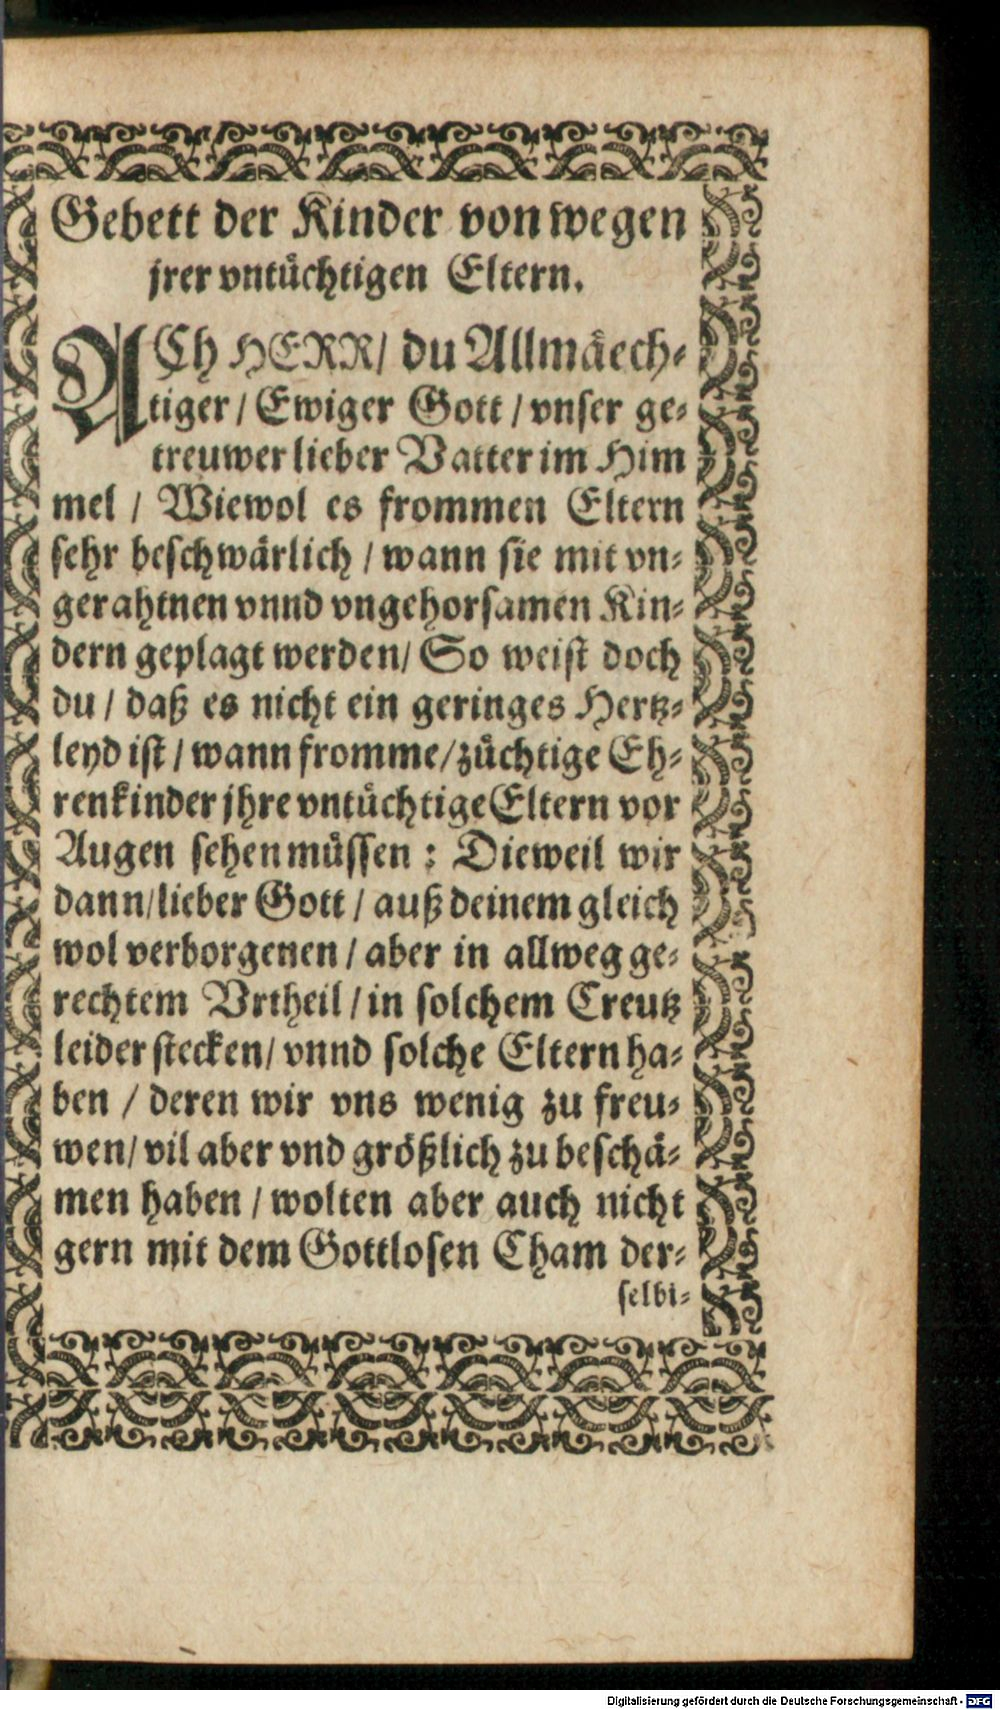 Gebett der Kinder von wegen
jrer vntüchtigen Eltern.
ACh HERR/ du Allmäech-
tiger / Ewiger Gott / vnser ge-
treuwer lieber Vatter im Him
mel / Wiewol es frommen Eltern
sehr beschwärlich / wann sie mit vn-
gerahtnen vnnd vngehorsamen Kin-
dern geplagt werden/ So weist doch
du / daß es nicht ein geringes Hertz-
leyd ist / wann fromme/züchtige Eh-
renkinder jhre vntüchtige Eltern vor
Augen sehen müssen : Dieweil wir
dann/lieber Gott / auß deinem gleich
wol verborgenen / aber in allweg ge-
rechtem Vrtheil / in solchem Creutz
leider stecken/ vnnd solche Eltern ha-
ben / deren wir vns wenig zu freu-
wen/ vil aber vnd größlich zu beschä-
men haben / wolten aber auch nicht
gern mit dem Gottlosen Cham der-
selbi-
Digitalisierung gefördert durch die Deutsche Forschungsgemeinschaft - DFG